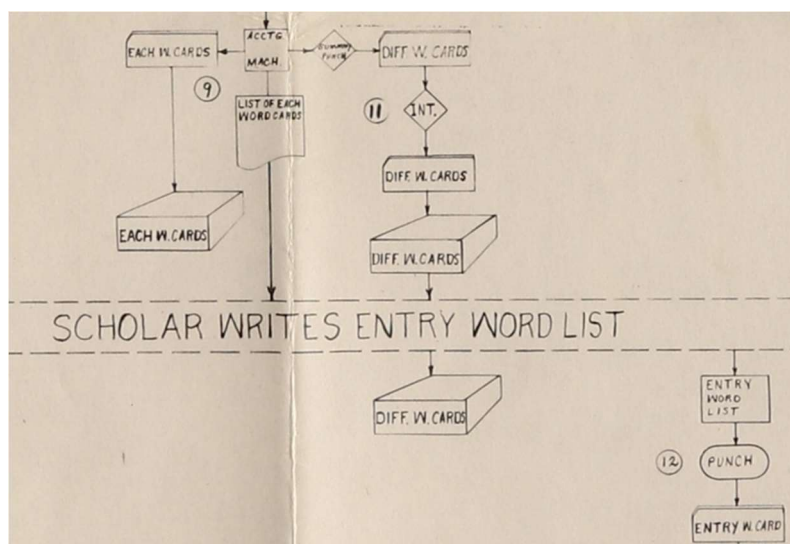 EACH W. CARDS
ACCTG
MACH.
SUMMARY
PUNCH
DIFF. W. CARDS
9
LIST OF EACH
WORD CARDS
11
INT.
DIFF. W. CARDS
EACH W. CARDS
DIFF. W. CARDS
SCHOLAR WRITES ENTRY WORD LIST
DIFF. W. CARDS
ENTRY
WORD
LIST
12
PUNCH
ENTRY W. CARD